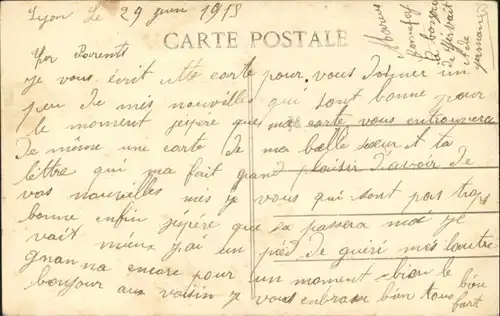 Lyon Le 29 juin 1918
CARTE POSTALE
Parents
Je vous écrit cette carte pour vous donner un
peu de mes nouvelles qui sont bonne pour
le moment j'espère que ma carte vous entrouvera
de meme une carte de ma belle sœur et ta
littre qui ma fait grand plaisir d'avoir de
vos nouvelles mis je vous qui sont pas trop
bonne enfin j'espére que sa passera moi je
vait mieux j'ai un pied de guéri mes lautre
gnan na encore pour un moment bien le
bonjour aux voisin je vous enbrasse bien tous bien
fort